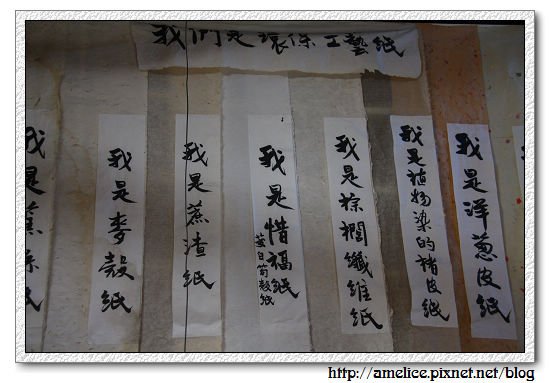 我們是環保工藝紙
我是蕉
紙
我是麥殼紙
我是蔗渣紙
我是惜福紙
茭白筍殼紙
我是棕櫚纖維紙
我是植物染的楮皮紙
我是洋蔥皮紙
http://amelice.pixnet.net/blog